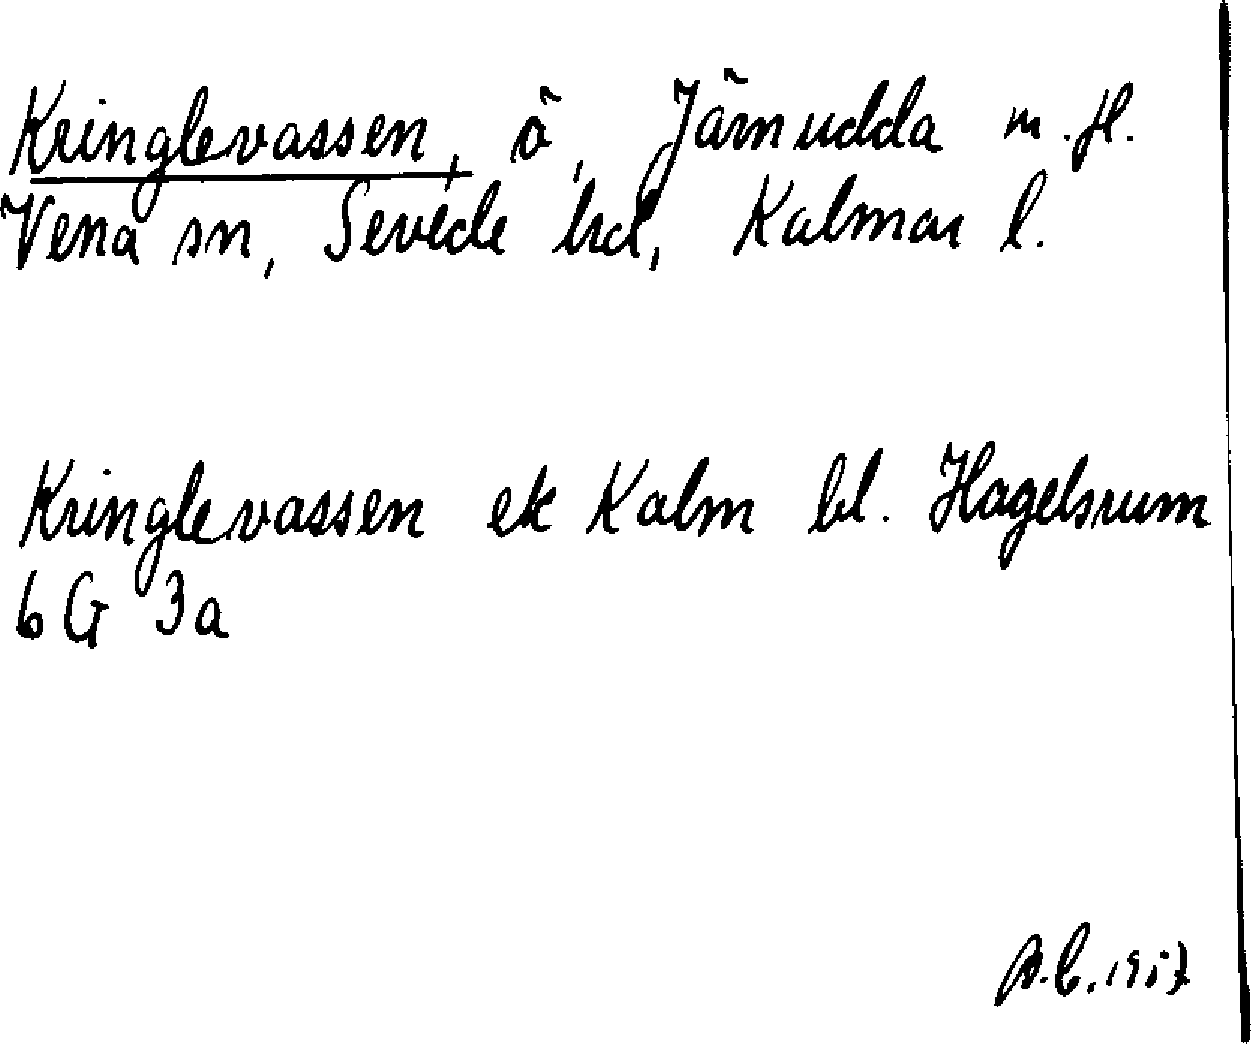 Kringlevassen, ö, Järnudda m.fl.
Vena sn, Sevede hd, Kalmar l.
Kringlevassen ek Kalm bl. Hagelsrum
6 G 3a
A.C. 1957